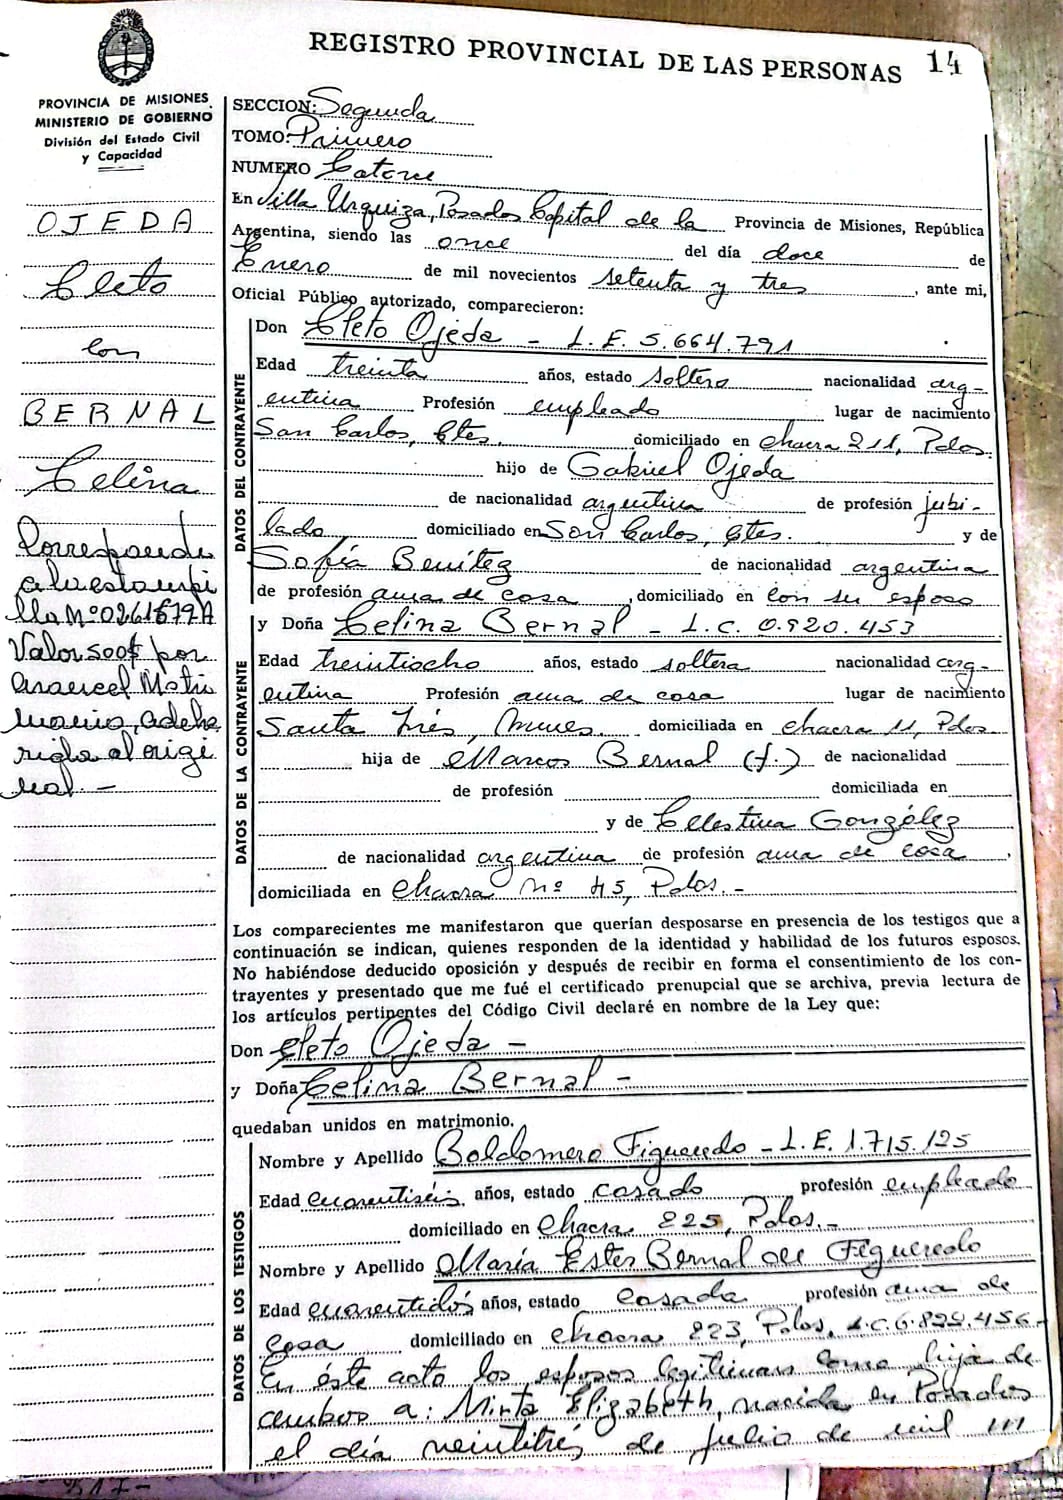 REGISTRO PROVINCIAL DE LAS PERSONAS 14
PROVINCIA DE MISIONES
MINISTERIO DE GOBIERNO
División del Estado Civil
y Capacidad
OJEDA
Cleto
con
BERNAL
Celina
Corresponde
a la estampi
lla Nº 0261679A
Valor 500$ por
arancel Matri
monio, adhe
rida al origi
nal. -
SECCION: Segunda
TOMO: Primero
NUMERO Catorce
En Villa Urquiza, Posadas Capital de la Provincia de Misiones, República
Argentina, siendo las once del día doce de
Enero de mil novecientos setenta y tres, ante mi,
Oficial Público autorizado, comparecieron:
DATOS DEL CONTRAYENTE
Don Cleto Ojeda - L.E. 5.664.791
Edad treinta años, estado soltero nacionalidad arg-
entina Profesión empleado lugar de nacimiento
San Carlos, Ctes. domiciliado en chacra 211, Pdas.
hijo de Gabriel Ojeda
de nacionalidad argentina de profesión jubi-
lado domiciliado en San Carlos, Ctes. y de
Sofía Benítez de nacionalidad argentina
de profesión ama de casa, domiciliado en con su esposo
DATOS DE LA CONTRAYENTE
y Doña Celina Bernal - L.C. 0.920.453
Edad treintiocho años, estado soltera nacionalidad arg-
entina Profesión ama de casa lugar de nacimiento
Santa Inés, Mnes. domiciliada en chacra 11, Pdas
hija de Marcos Bernal (f.) de nacionalidad
de profesión domiciliada en
y de Celestina González
de nacionalidad argentina de profesión ama de casa,
domiciliada en chacra nº 45, Pdas. -
Los comparecientes me manifestaron que querían desposarse en presencia de los testigos que a
continuación se indican, quienes responden de la identidad y habilidad de los futuros esposos.
No habiéndose deducido oposición y después de recibir en forma el consentimiento de los con-
trayentes y presentado que me fué el certificado prenupcial que se archiva, previa lectura de
los artículos pertinentes del Código Civil declaré en nombre de la Ley que:
Don Cleto Ojeda -
y Doña Celina Bernal -
quedaban unidos en matrimonio.
DATOS DE LOS TESTIGOS
Nombre y Apellido Baldomero Figueredo - L.E. 1.715.125
Edad cuarentiseis, años, estado casado profesión empleado
domiciliado en chacra 225, Pdas. -
Nombre y Apellido María Ester Bernal de Figueredo
Edad cuarentidós años, estado casada profesión ama de
casa domiciliado en chacra 223, Pdas, L.C. 6.822.456-
En éste acto los esposos legitiman como hija de
ambos a: Mirta Elizabeth, nacida en Posadas
el día veintitrés de julio de mil